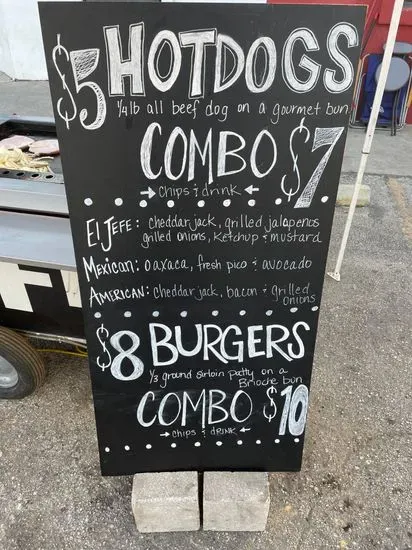 $5 HOTDOGS
1/4lb all beef dog on a gourmet bun
COMBO $7
→ chips & drink ←
El Jefe: cheddar jack, grilled jalapenos
grilled onions, ketchup & mustard
Mexican: oaxaca, fresh pico & avocado
American: cheddar jack, bacon & grilled
onions
$8 BURGERS
1/3 ground sirloin patty on a
Brioche bun
COMBO $10
→ chips & drink ←
F